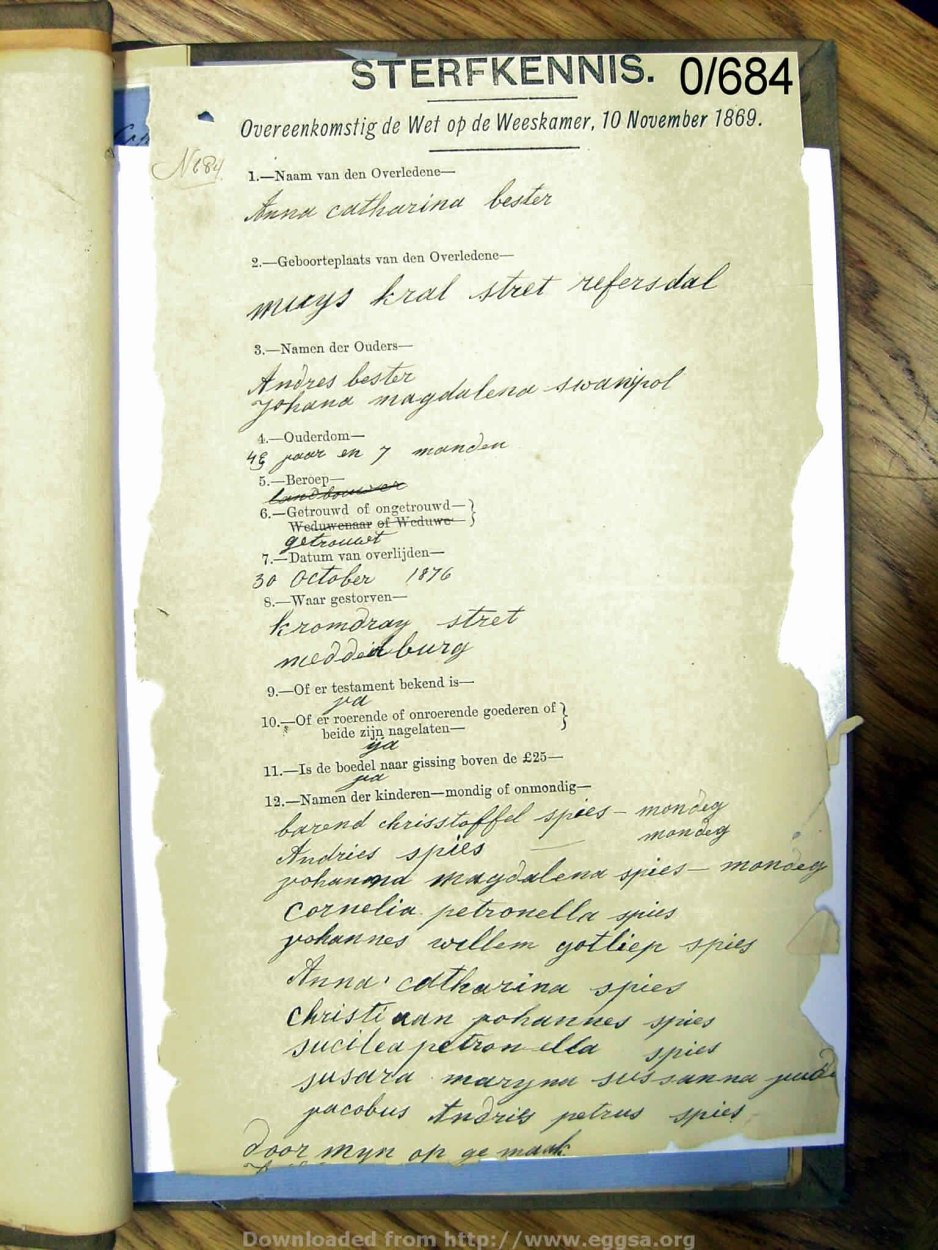 STERFKENNIS. 0/684
Overeenkomstig de Wet op de Weeskamer, 10 November 1869.
N 684
1.—Naam van den Overledene—
Anna catharina bester
2.—Geboorteplaats van den Overledene—
muys kral stret refersdal
3.—Namen der Ouders—
Andres bester
Johana magdalena swanipol
4.—Ouderdom—
jaar en 7 manden
5.—Beroep—
landbouwer
6.—Getrouwd of ongetrouwd—
Weduwenaar of Weduwe
getrouwt
7.—Datum van overlijden—
30 October 1876
8.—Waar gestorven—
kromdray stret
meddelburg
9.—Of er testament bekend is—
ya
10.—Of er roerende of onroerende goederen of
beide zijn nagelaten—
ya
11.—Is de boedel naar gissing boven de £25—
ya
12.—Namen der kinderen—mondig of onmondig—
barend chrisstoffel spies – mondeg
Andries spies — mondeg
johanna magdalena spies – mondeg
cornelia petronella spies
johannes willem gotliep spies
Anna catharina spies
christiaan johannes spies
sucilea petronella spies
susara maryna sussanna
jacobus Andries petrus spies
door myn op ge maak
Downloaded from http://www.eggsa.org